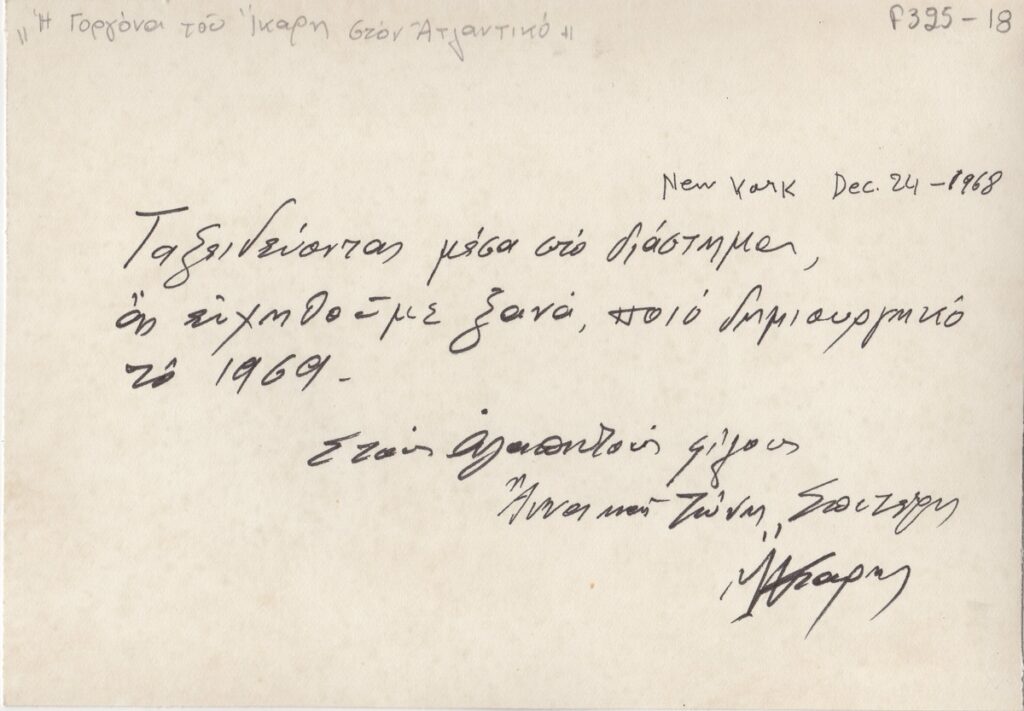 "Ἡ Γοργόνα τοῦ Ἴκαρη στόν Ἀτλαντικό"
F395-18
New York Dec. 24-1968
Ταξειδεύοντας μέσα στό διάστημα,
ἄς εὐχηθοῦμε ξανά, ποιό δημιουργικό
τό 1969-
Στούς ἀγαπητούς φίλους
Ἄννα καί Τώνη Σπιτέρη
Ἴκαρης